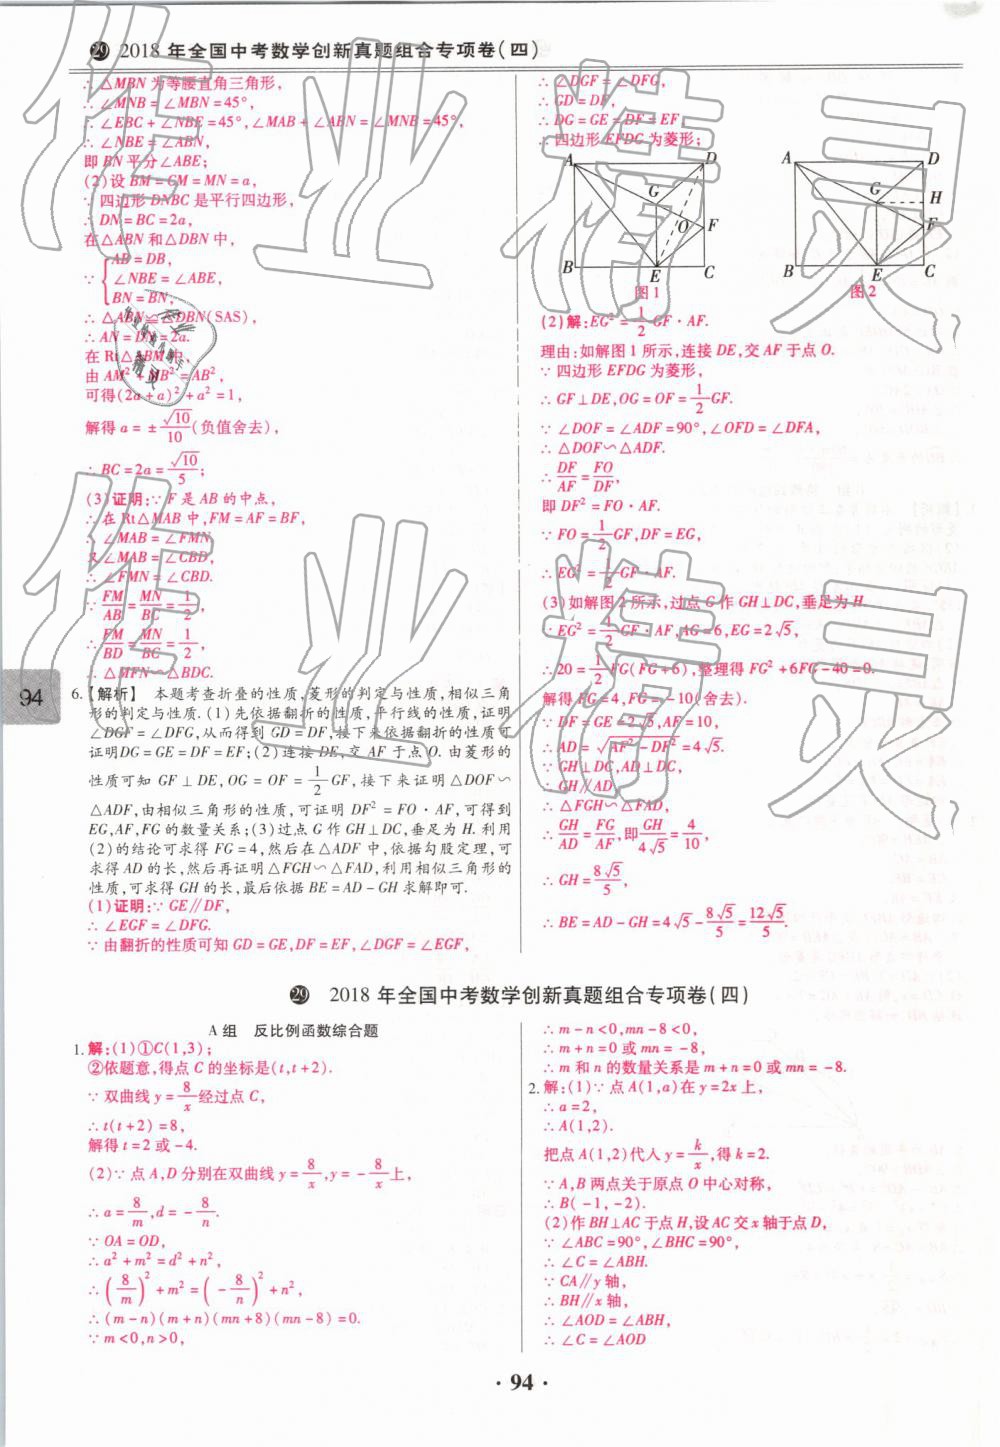 ㉙ 2018 年全国中考数学创新真题组合专项卷(四)
∴ △MBN 为等腰直角三角形,
∴ ∠MNB = ∠MBN = 45°,
∴ ∠EBC + ∠NBE = 45°, ∠MAB + ∠ABN = ∠MNB = 45°,
∴ ∠NBE = ∠ABN,
即 BN 平分∠ABE;
(2)设 BM = CM = MN = a,
∵ 四边形 DNBC 是平行四边形,
∴ DN = BC = 2a,
在△ABN 和△DBN 中,
∵ { AB = DB,
∠NBE = ∠ABE,
BN = BN,
∴ △ABN ≌ △DBN(SAS),
∴ AN = DN = 2a.
在 Rt△ABM 中,
由 AM² + MB² = AB²,
可得(2a + a)² + a² = 1,
解得 a = ± √10/10 (负值舍去),
∴ BC = 2a = √10/5;
(3)证明:∵ F 是 AB 的中点,
∴ 在 Rt△MAB 中, FM = AF = BF,
∴ ∠MAB = ∠FMN,
又∠MAB = ∠CBD,
∴ ∠FMN = ∠CBD.
∵ FM/AB = MN/BC = 1/2,
∴ FM/BD = MN/BC = 1/2,
∴ △MFN ∽ △BDC.
6.【解析】 本题考查折叠的性质,菱形的判定与性质,相似三角
形的判定与性质.(1)先依据翻折的性质,平行线的性质,证明
∠DGF = ∠DFG,从而得到 GD = DF,接下来依据翻折的性质可
证明DG = GE = DF = EF;(2)连接 DE,交 AF 于点 O. 由菱形的
性质可知 GF ⊥ DE, OG = OF = 1/2 GF,接下来证明 △DOF ∽
△ADF,由相似三角形的性质,可证明 DF² = FO · AF,可得到
EG,AF,FG 的数量关系;(3)过点 G 作 GH⊥DC,垂足为 H. 利用
(2)的结论可求得 FG = 4,然后在△ADF 中,依据勾股定理,可
求得 AD 的长,然后再证明△FGH∽△FAD,利用相似三角形的
性质,可求得 GH 的长,最后依据 BE = AD - GH 求解即可.
(1)证明:∵ GE∥DF,
∴ ∠EGF = ∠DFG.
∵ 由翻折的性质可知 GD = GE, DF = EF, ∠DGF = ∠EGF,
∴ ∠DGF = ∠DFG,
∴ GD = DF,
∴ DG = GE = DF = EF
∴ 四边形 EFDG 为菱形;
A D G O F B E C
图 1
A D G H F B E C
图 2
(2)解:EG² = 1/2 GF · AF.
理由:如解图 1 所示,连接 DE,交 AF 于点 O.
∵ 四边形 EFDG 为菱形,
∴ GF⊥DE, OG = OF = 1/2 GF.
∵ ∠DOF = ∠ADF = 90°, ∠OFD = ∠DFA,
∴ △DOF∽△ADF.
∴ DF/AF = FO/DF,
即 DF² = FO · AF.
∵ FO = 1/2 GF, DF = EG,
∴ EG² = 1/2 GF · AF.
(3)如解图 2 所示,过点 G 作 GH⊥DC,垂足为 H.
∵ EG² = 1/2 GF · AF, AG = 6, EG = 2√5,
∴ 20 = 1/2 FG(FG + 6),整理得 FG² + 6FG - 40 = 0.
解得 FG = 4, FG = -10(舍去).
∵ DF = GE = 2√5, AF = 10,
∴ AD = √(AF² - DF²) = 4√5.
∵ GH⊥DC, AD⊥DC,
∴ GH∥AD,
∴ △FGH∽△FAD,
∴ GH/AD = FG/AF,即 GH/4√5 = 4/10,
∴ GH = 8√5/5,
∴ BE = AD - GH = 4√5 - 8√5/5 = 12√5/5.
㉙ 2018 年全国中考数学创新真题组合专项卷(四)
A 组 反比例函数综合题
1. 解:(1)①C(1,3);
②依题意,得点 C 的坐标是(t, t + 2).
∵ 双曲线 y = 8/x 经过点 C,
∴ t(t + 2) = 8,
解得 t = 2 或 -4.
(2)∵ 点 A,D 分别在双曲线 y = 8/x, y = - 8/x 上,
∴ a = 8/m, d = - 8/n.
∵ OA = OD,
∴ a² + m² = d² + n²,
∴ (8/m)² + m² = (- 8/n)² + n²,
∴ (m - n)(m + n)(mn + 8)(mn - 8) = 0.
∵ m < 0, n > 0,
∴ m - n < 0, mn - 8 < 0,
∴ m + n = 0 或 mn = -8,
∴ m 和 n 的数量关系是 m + n = 0 或 mn = -8.
2. 解:(1)∵ 点 A(1,a)在 y = 2x 上,
∴ a = 2,
∴ A(1,2).
把点 A(1,2)代入 y = k/x,得 k = 2.
∵ A,B 两点关于原点 O 中心对称,
∴ B(-1,-2).
(2)作 BH⊥AC 于点 H,设 AC 交 x 轴于点 D,
∵ ∠ABC = 90°, ∠BHC = 90°,
∴ ∠C = ∠ABH.
∵ CA∥y 轴,
∴ BH∥x 轴,
∴ ∠AOD = ∠ABH,
∴ ∠C = ∠AOD
94
· 94 ·
作业精灵
作业精灵